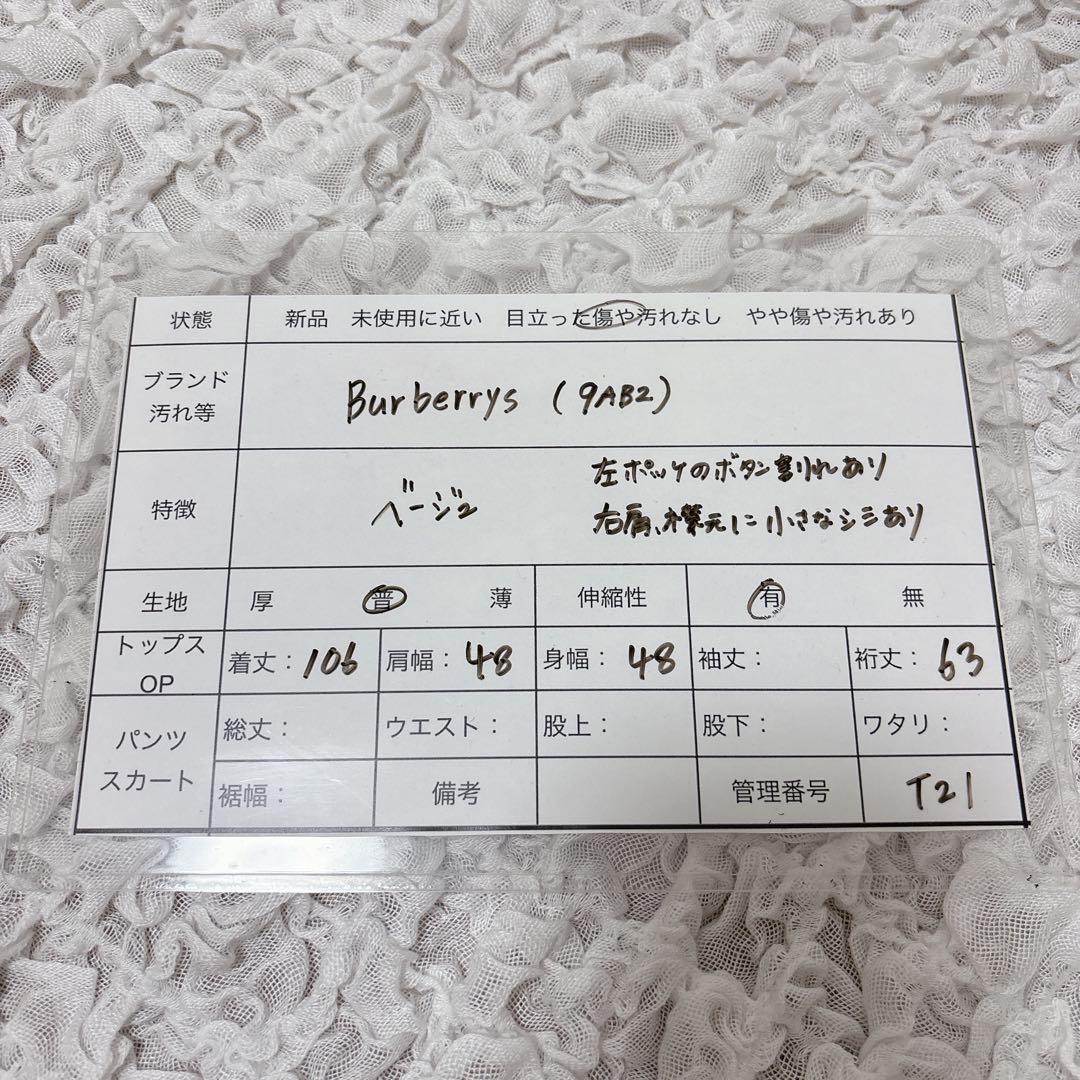 状態 新品 未使用に近い 目立った傷や汚れなし やや傷や汚れあり
ブランド
汚れ等
Burberrys (9AB2)
特徴
ベージュ
左ポッケのボタン割れあり
右肩、襟元に小さなシミあり
生地 厚 普 薄 伸縮性 有 無
トップス
OP
着丈:106 肩幅:48 身幅:48 袖丈: 裄丈:63
パンツ
スカート
総丈: ウエスト: 股上: 股下: ワタリ:
裾幅: 備考 管理番号 T21